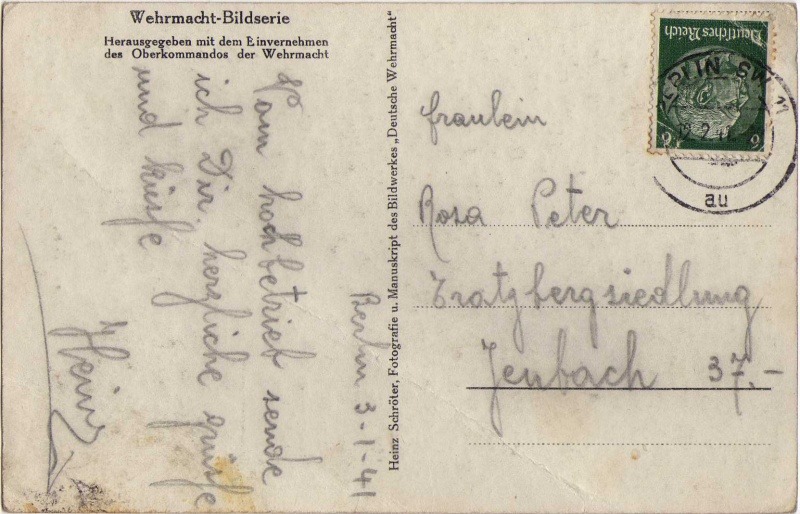 Wehrmacht-Bildserie
Herausgegeben mit dem Einvernehmen
des Oberkommandos der Wehrmacht
Berlin 3-1-41
Vom hochbetrieb sende
ich Dir herzliche grüße
und küsse
Heinz
Heinz Schröter, Fotografie u. Manuskript des Bildwerkes „Deutsche Wehrmacht"
fraulein
Rosa Peter
Tratzbergsiedlung
Jenbach 37.-
Deutsches Reich
6
6
BERLIN SW 11
au